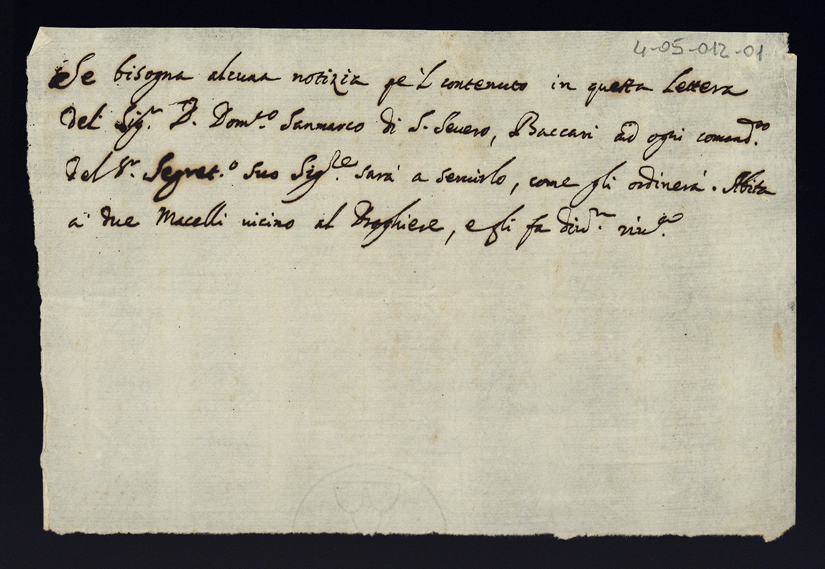 4-05-012-01
Se bisogna alcuna notizia pe'l contenuto in questa Lettera
del Sig.r D. Dom.co Sanmarco di S. Severo, Baccari ad ogni comand.o
del Sr. Segret.o suo Sig.re sarà a servirlo, come gli ordinerà. Abita
a due Macelli vicino al Droghiere, e gli fa div.ma riv.za